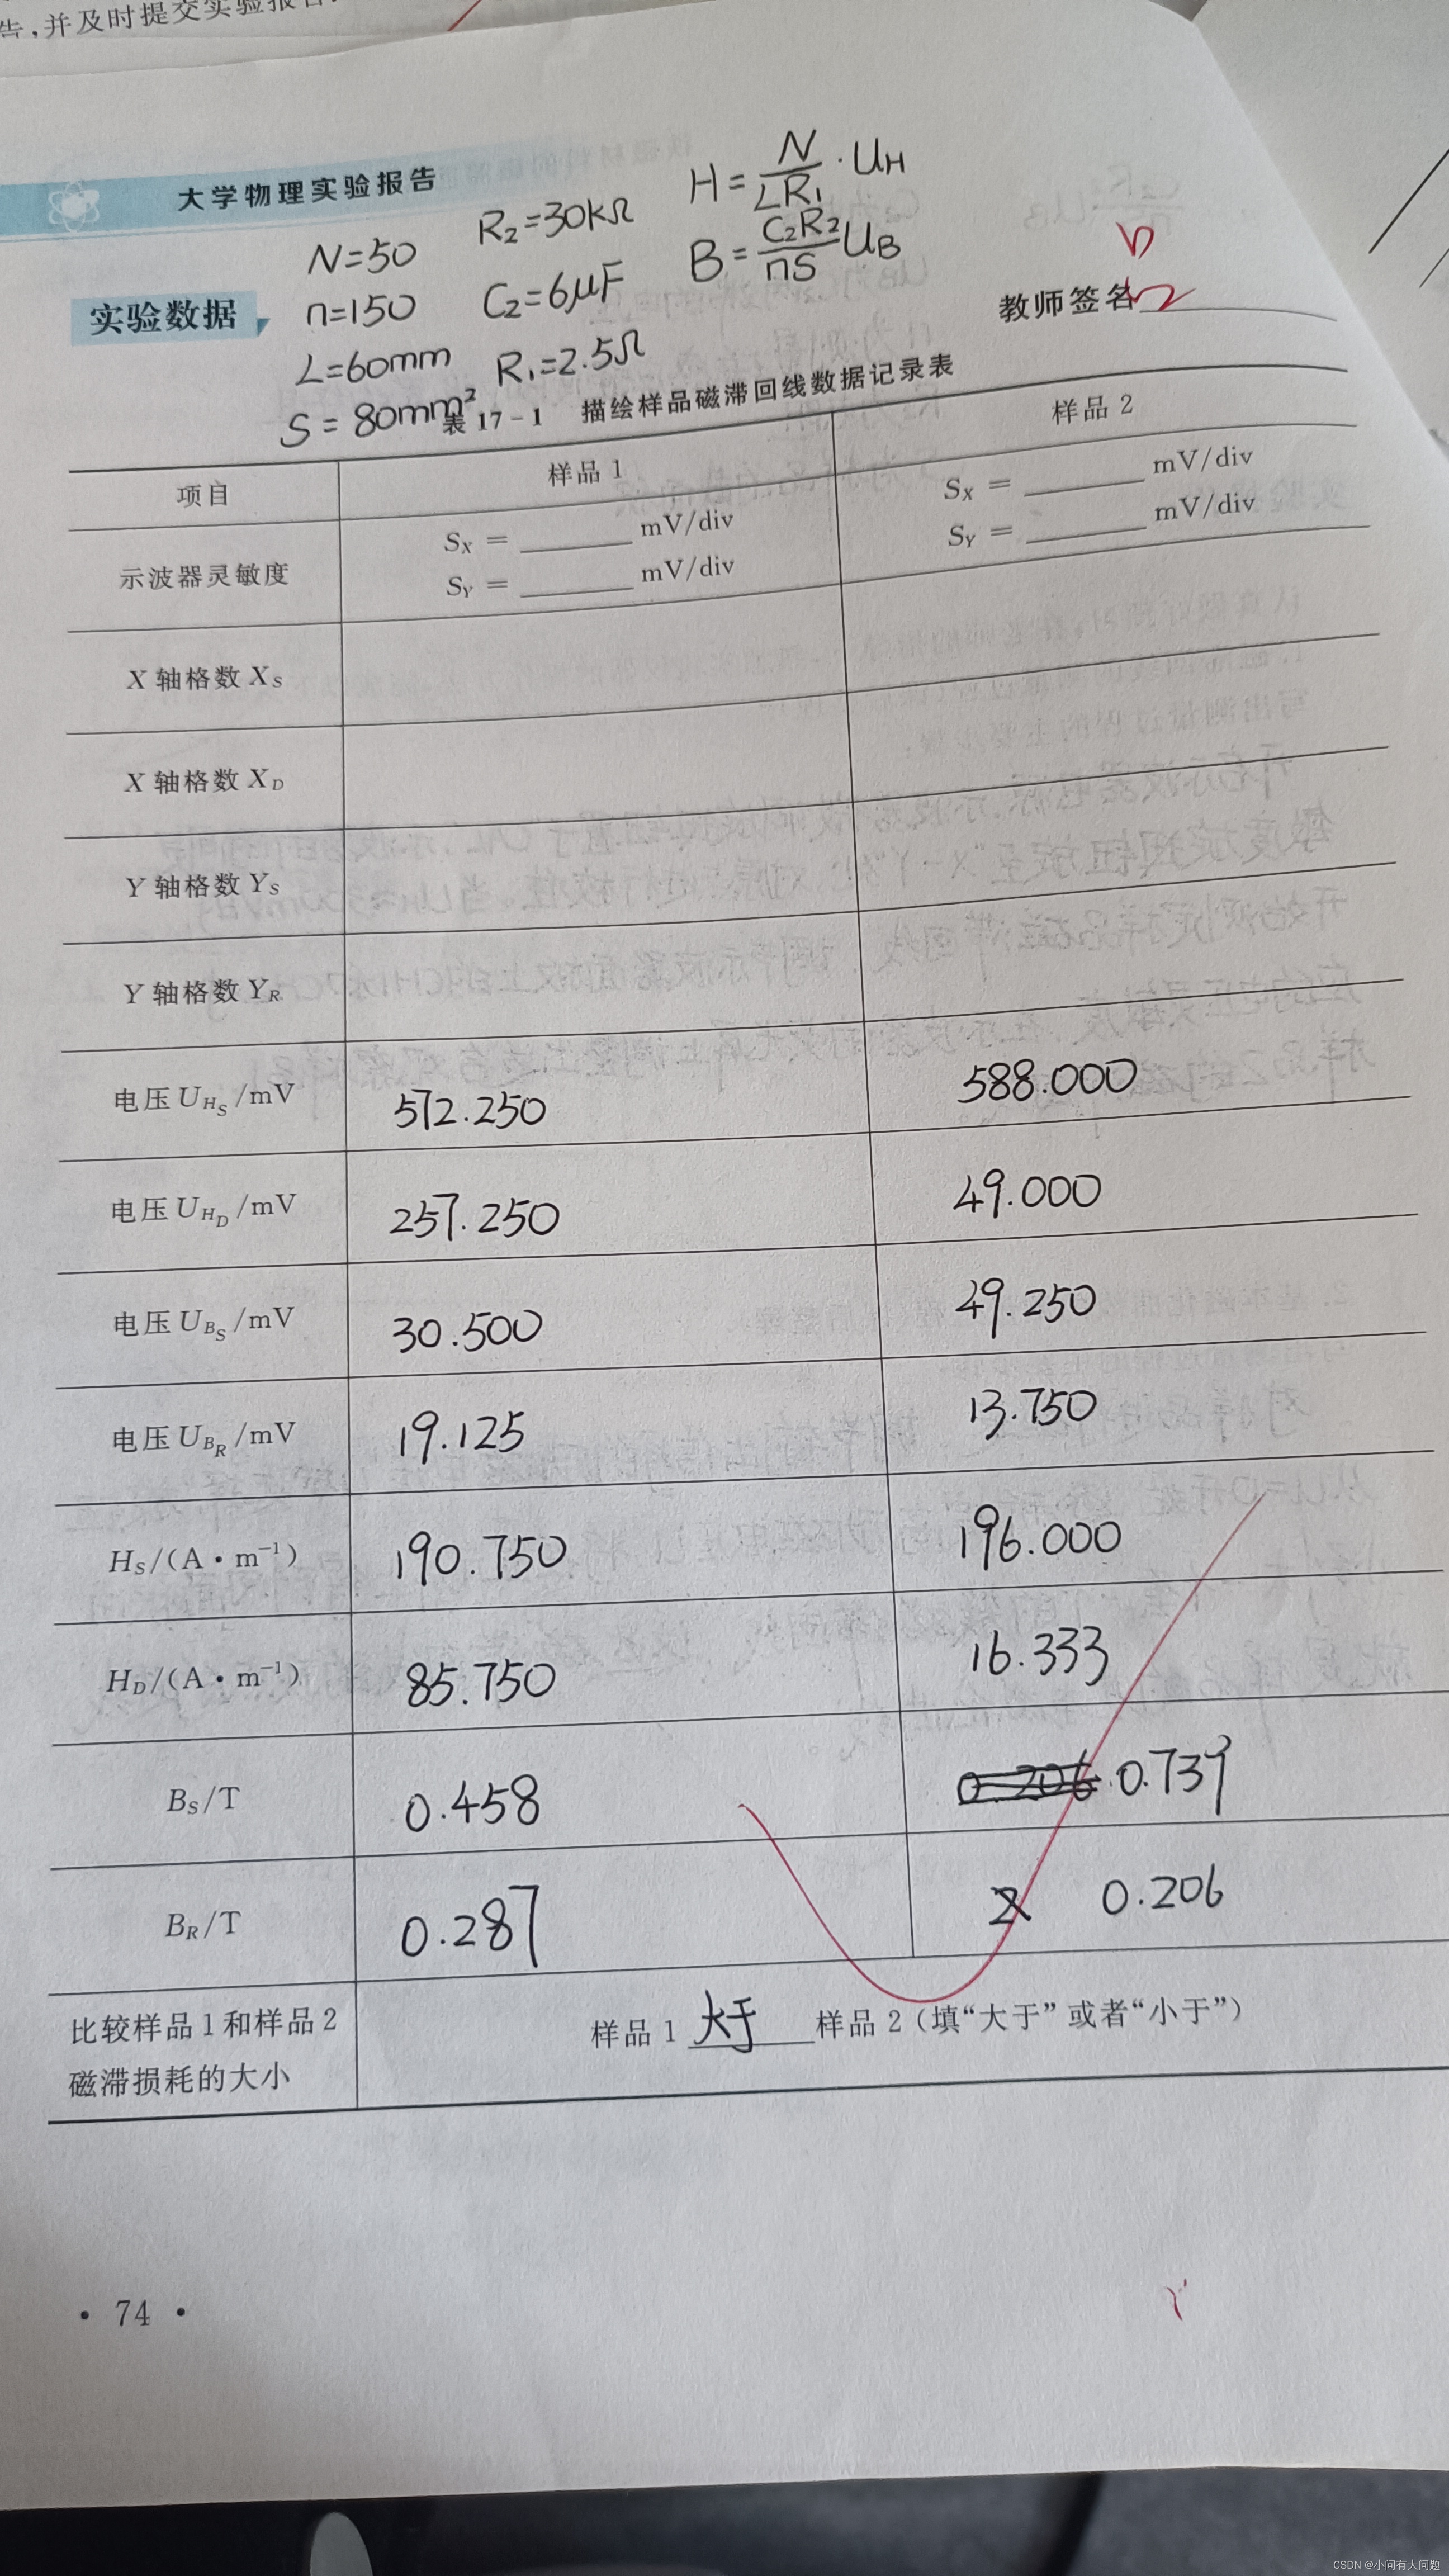 告,并及时提交实验报告.
大学物理实验报告
N=50
R₂=30kΩ
H=N/LR₁·U_H
n=150
C₂=6μF
B=C₂R₂/nS U_B
L=60mm
R₁=2.5Ω
S=80mm²
实验数据
教师签名
表 17-1 描绘样品磁滞回线数据记录表
项目 样品 1 样品 2
示波器灵敏度 S_X = ______ mV/div S_X = ______ mV/div
S_Y = ______ mV/div S_Y = ______ mV/div
X 轴格数 X_S
X 轴格数 X_D
Y 轴格数 Y_S
Y 轴格数 Y_R
电压 U_{H_S}/mV 572.250 588.000
电压 U_{H_D}/mV 257.250 49.000
电压 U_{B_S}/mV 30.500 49.250
电压 U_{B_R}/mV 19.125 13.750
H_S/(A·m⁻¹) 190.750 196.000
H_D/(A·m⁻¹) 85.750 16.333
B_S/T 0.458 0.206 0.739
B_R/T 0.287 0.206
比较样品 1 和样品 2
磁滞损耗的大小
样品 1 大于 样品 2(填“大于”或者“小于”)
· 74 ·
CSDN @小问有大问题